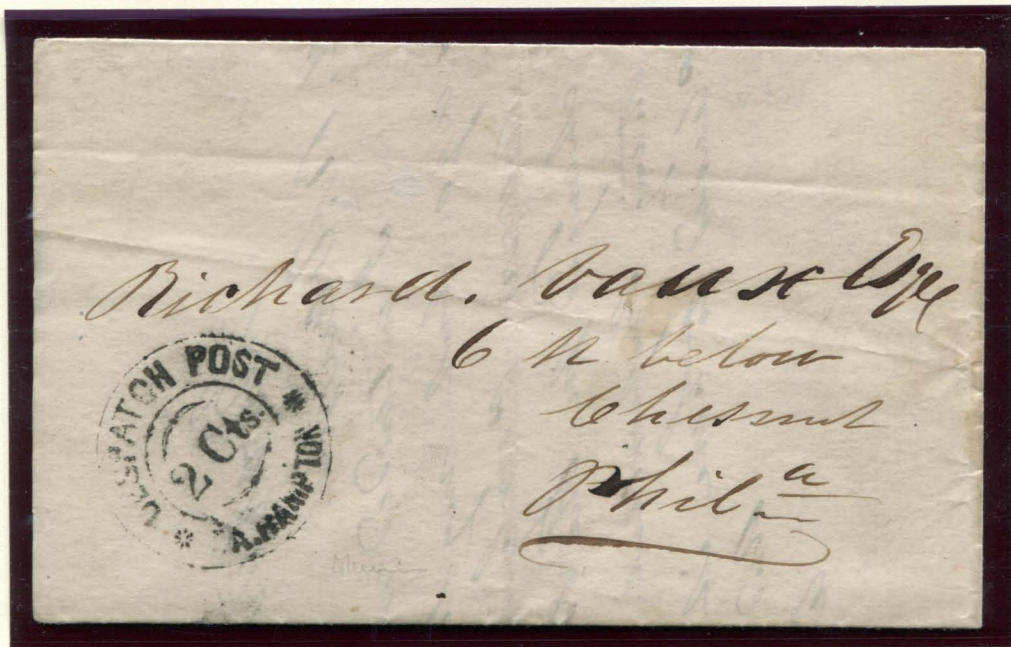 Richard. Vaux Esqr
6 st below
Chesnut
Phila
DESPATCH POST
2 Cts.
A. HAMPTON